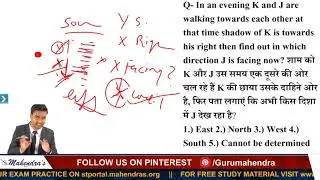 Q- In an evening K and J are
walking towards each other at
that time shadow of K is towards
his right then find out in which
direction J is facing now? शाम को
K और J उस समय एक दूसरे की ओर
चल रहे हैं K की छाया उसके दाहिने ओर
है, फिर पता लगाएं कि अभी किस दिशा
में J देख रहा है?
1.) East 2.) North 3.) West 4.)
South 5.) Cannot be determined
Mahendra's
FOLLOW US ON PINTEREST /Gurumahendra
UR EXAM PRACTICE ON stportal.mahendras.org || FOR FREE STUDY MATERIAL VISIT